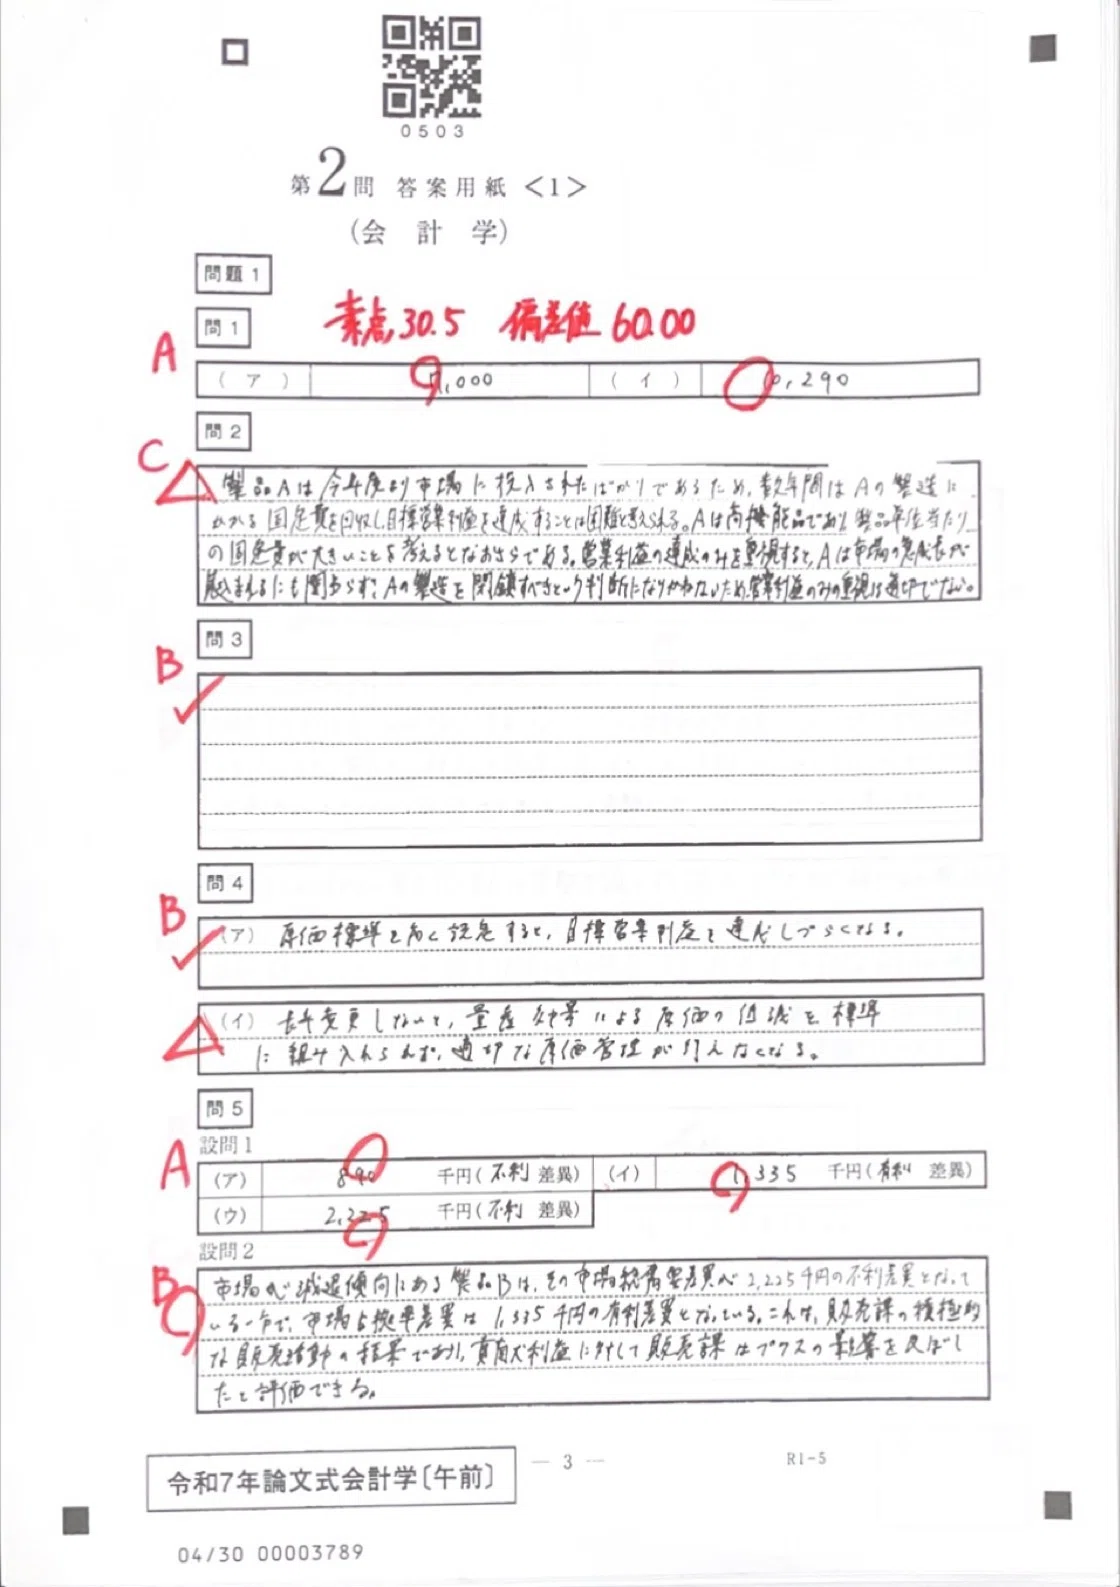 0503
第2問 答案用紙<1>
(会計学)
問題1
問1
素点 30.5 偏差値 60.00
A
(ア) 7,000 (イ) 6,290
問2
C
製品Aは今年度より市場に投入されたばかりであるため、数年間はAの製造に
かかる固定費を回収し、目標営業利益を達成することは困難と考えられる。Aは高機能品であり、製品単位当たり
の固定費が大きいことを考えるとなおさらである。営業利益の達成のみを重視すると、Aは市場の急成長が
見込まれるにも関わらず、Aの製造を閉鎖すべきという判断になりかねないため、営業利益のみの重視は適切でない。
問3
B
問4
B
(ア) 原価標準を高く設定すると、目標営業利益を達成しづらくなる。
(イ) 変更しないと、量産効果による原価の低減を標準
に組み入れられず、適切な原価管理が行えなくなる。
問5
設問1
A
(ア) 890 千円(不利 差異) (イ) 1,335 千円(有利 差異)
(ウ) 2,225 千円(不利 差異)
設問2
B
市場が減退傾向にある製品Bは、その市場総需要差異が2,225千円の不利差異となって
いる一方で、市場占拠率差異は1,335千円の有利差異となっている。これは、販売課の積極的
な販売活動の結果であり、貢献利益に対して販売課はプラスの影響を及ぼし
たと評価できる。
— 3 —
R1-5
令和7年論文式会計学〔午前〕
04/30 00003789